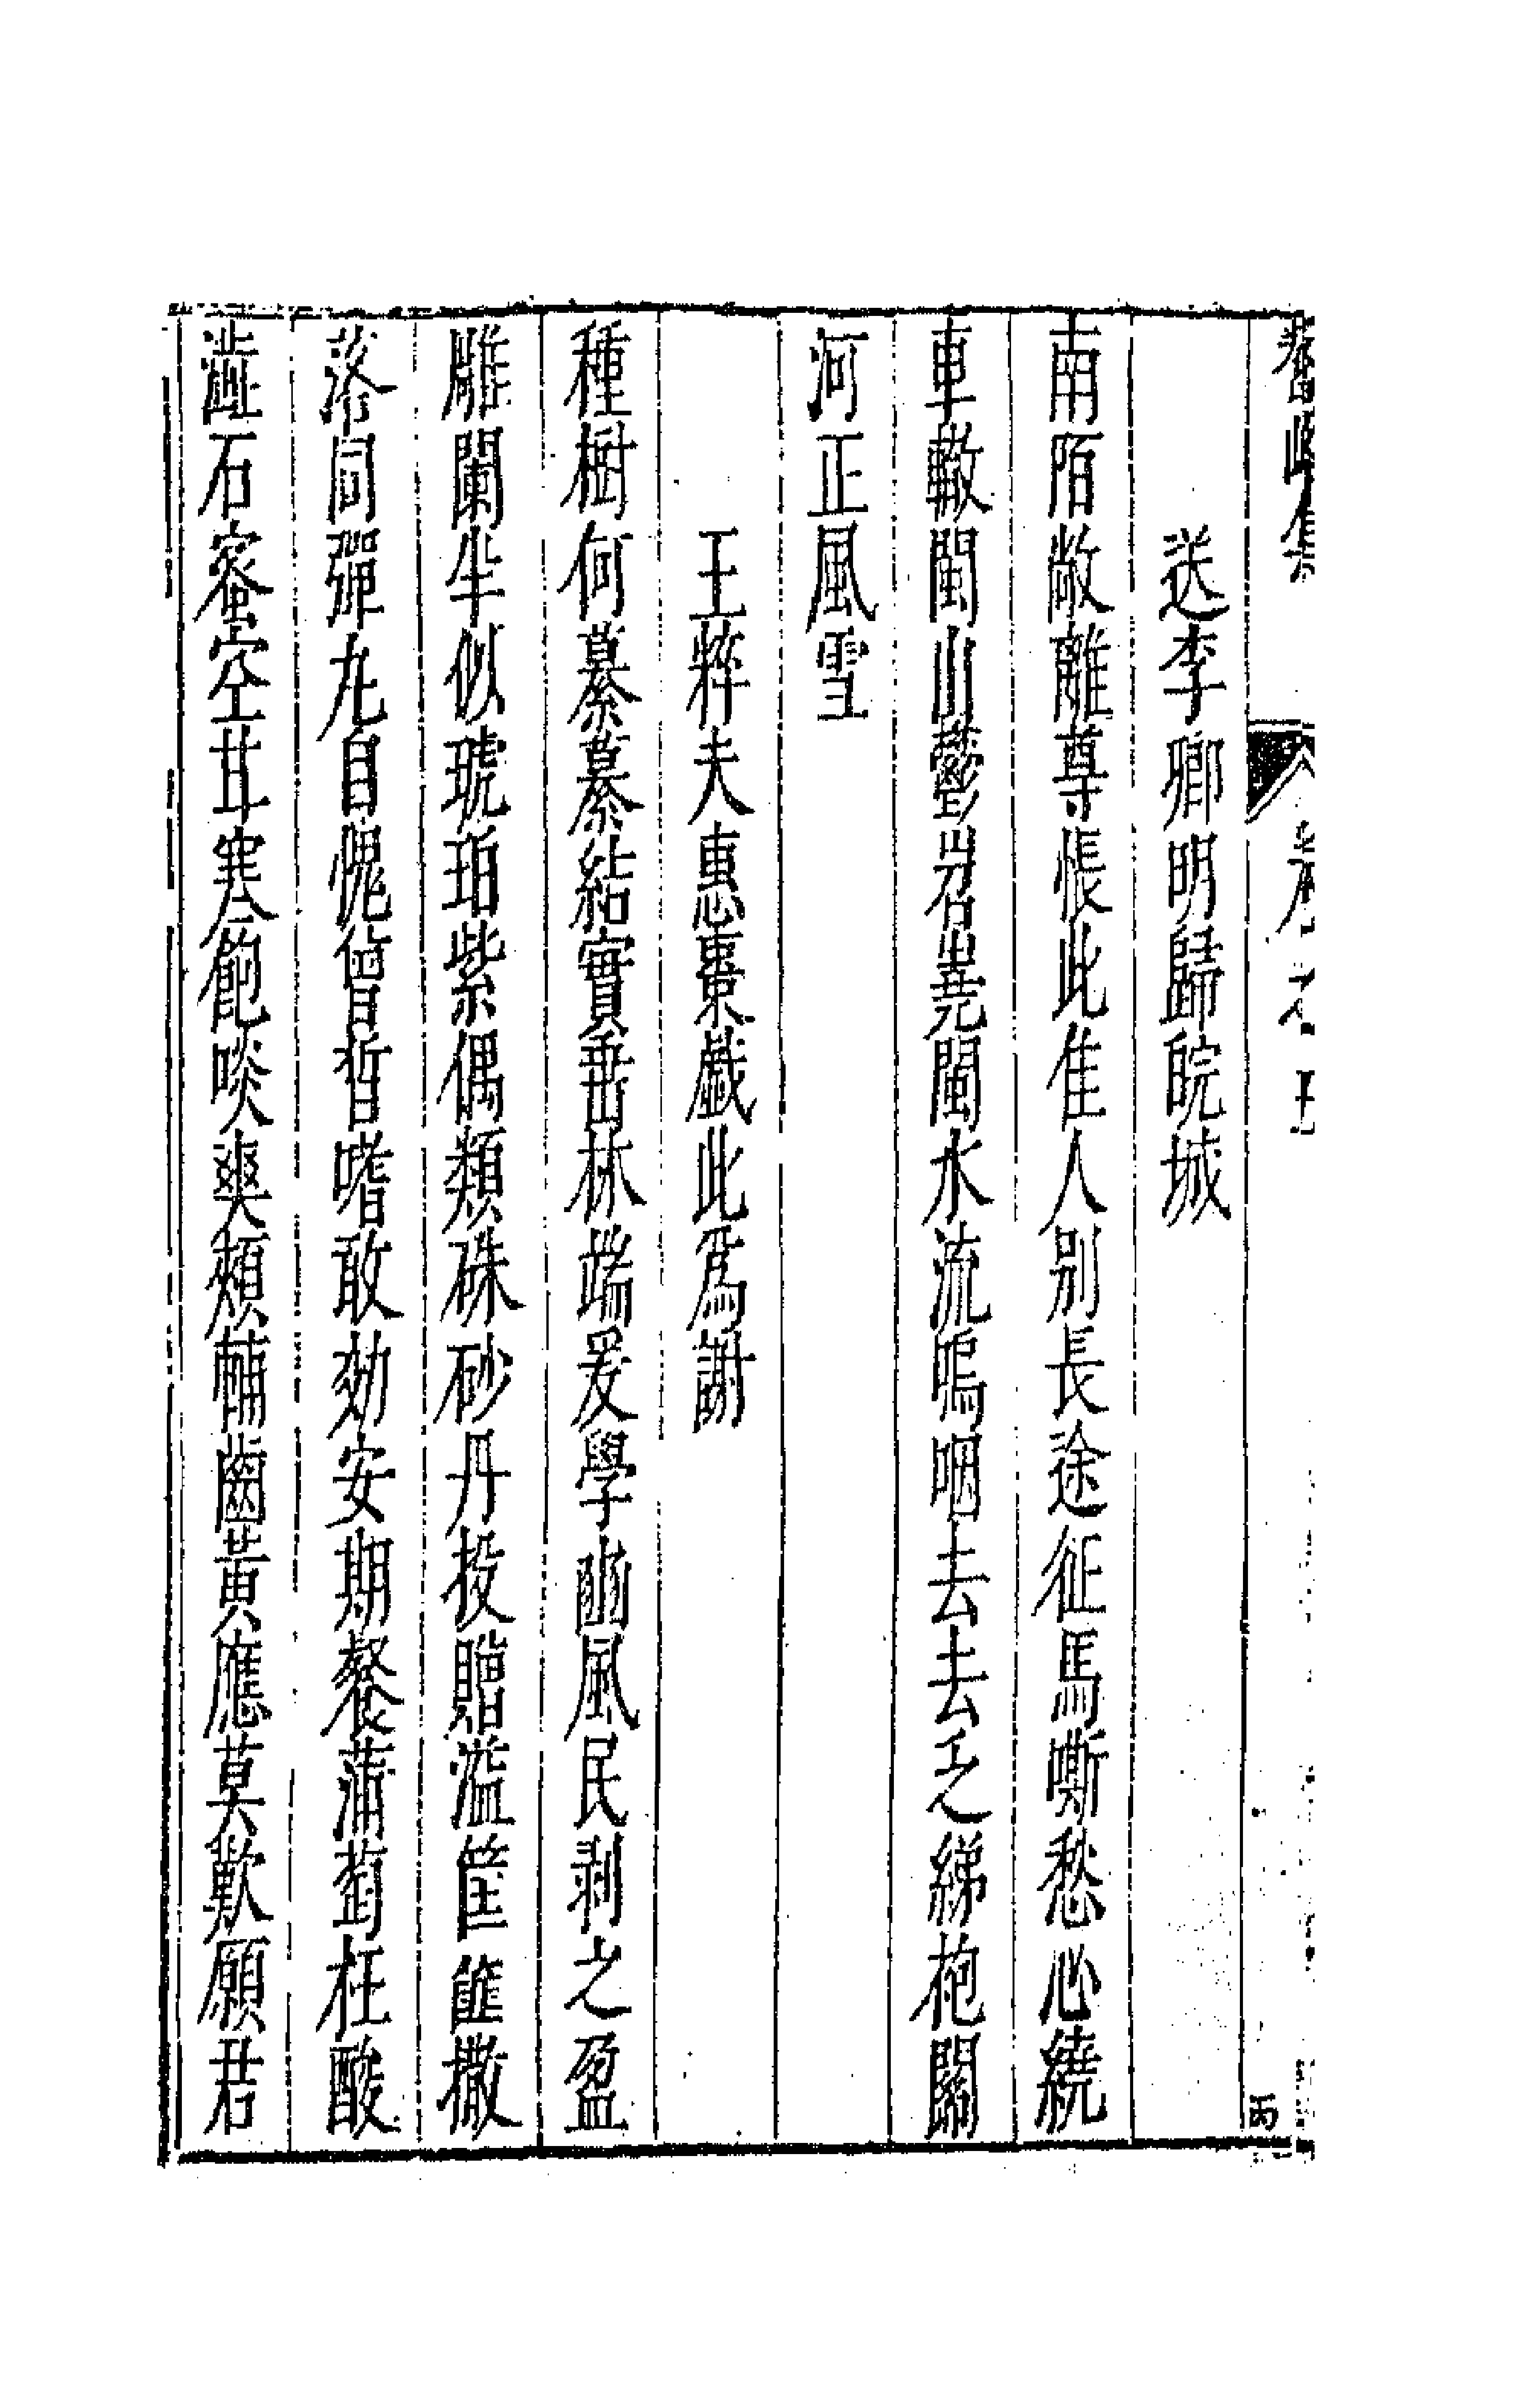 卷之
送李卿明歸皖城
南陌敞離尊悵此佳人別長途征馬嘶愁心繞
車轍閩山鬱岧嶤閩水流嗚咽去去乏綈袍關
河正風雪
王粹夫惠棗戲此為謝
種樹何纂纂結實垂林端爰學豳風民剥之盈
雕闌半似琥珀紫偶類硃砂丹投贈溢筐篚撒
落同彈丸自愧曾晳嗜敢効安期餐蒲萄枉酸
澁石蜜空甘寒飽啖爽頰輔齒黃應莫歎願君